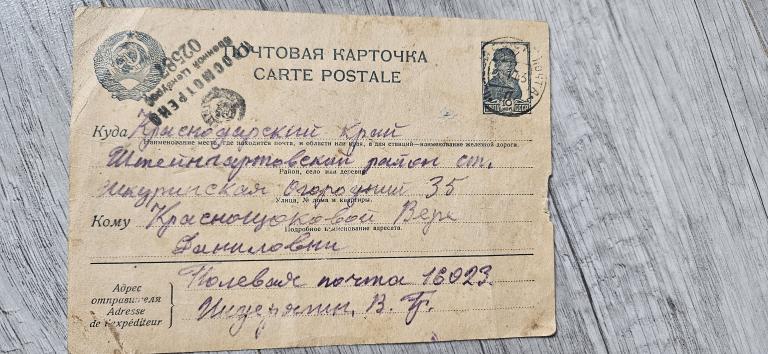 ПОЧТОВАЯ КАРТОЧКА
CARTE POSTALE
ПРОСМОТРЕНО
Военной Цензурой
02587
ПОЧТА
Куда Краснодарский край
Наименование места, где находится почта, и области или края, а для станций—наименование железной дороги.
Штейнгартовский район ст.
Район, село или деревня
Шкуринская Огородний 35
Улица, № дома и квартиры.
Кому Краснощоковой Вере
Подробное наименование адресата.
Даниловни
Адрес отправителя
Adresse de l'expéditeur
Полевая почта 16023.
В. Г.